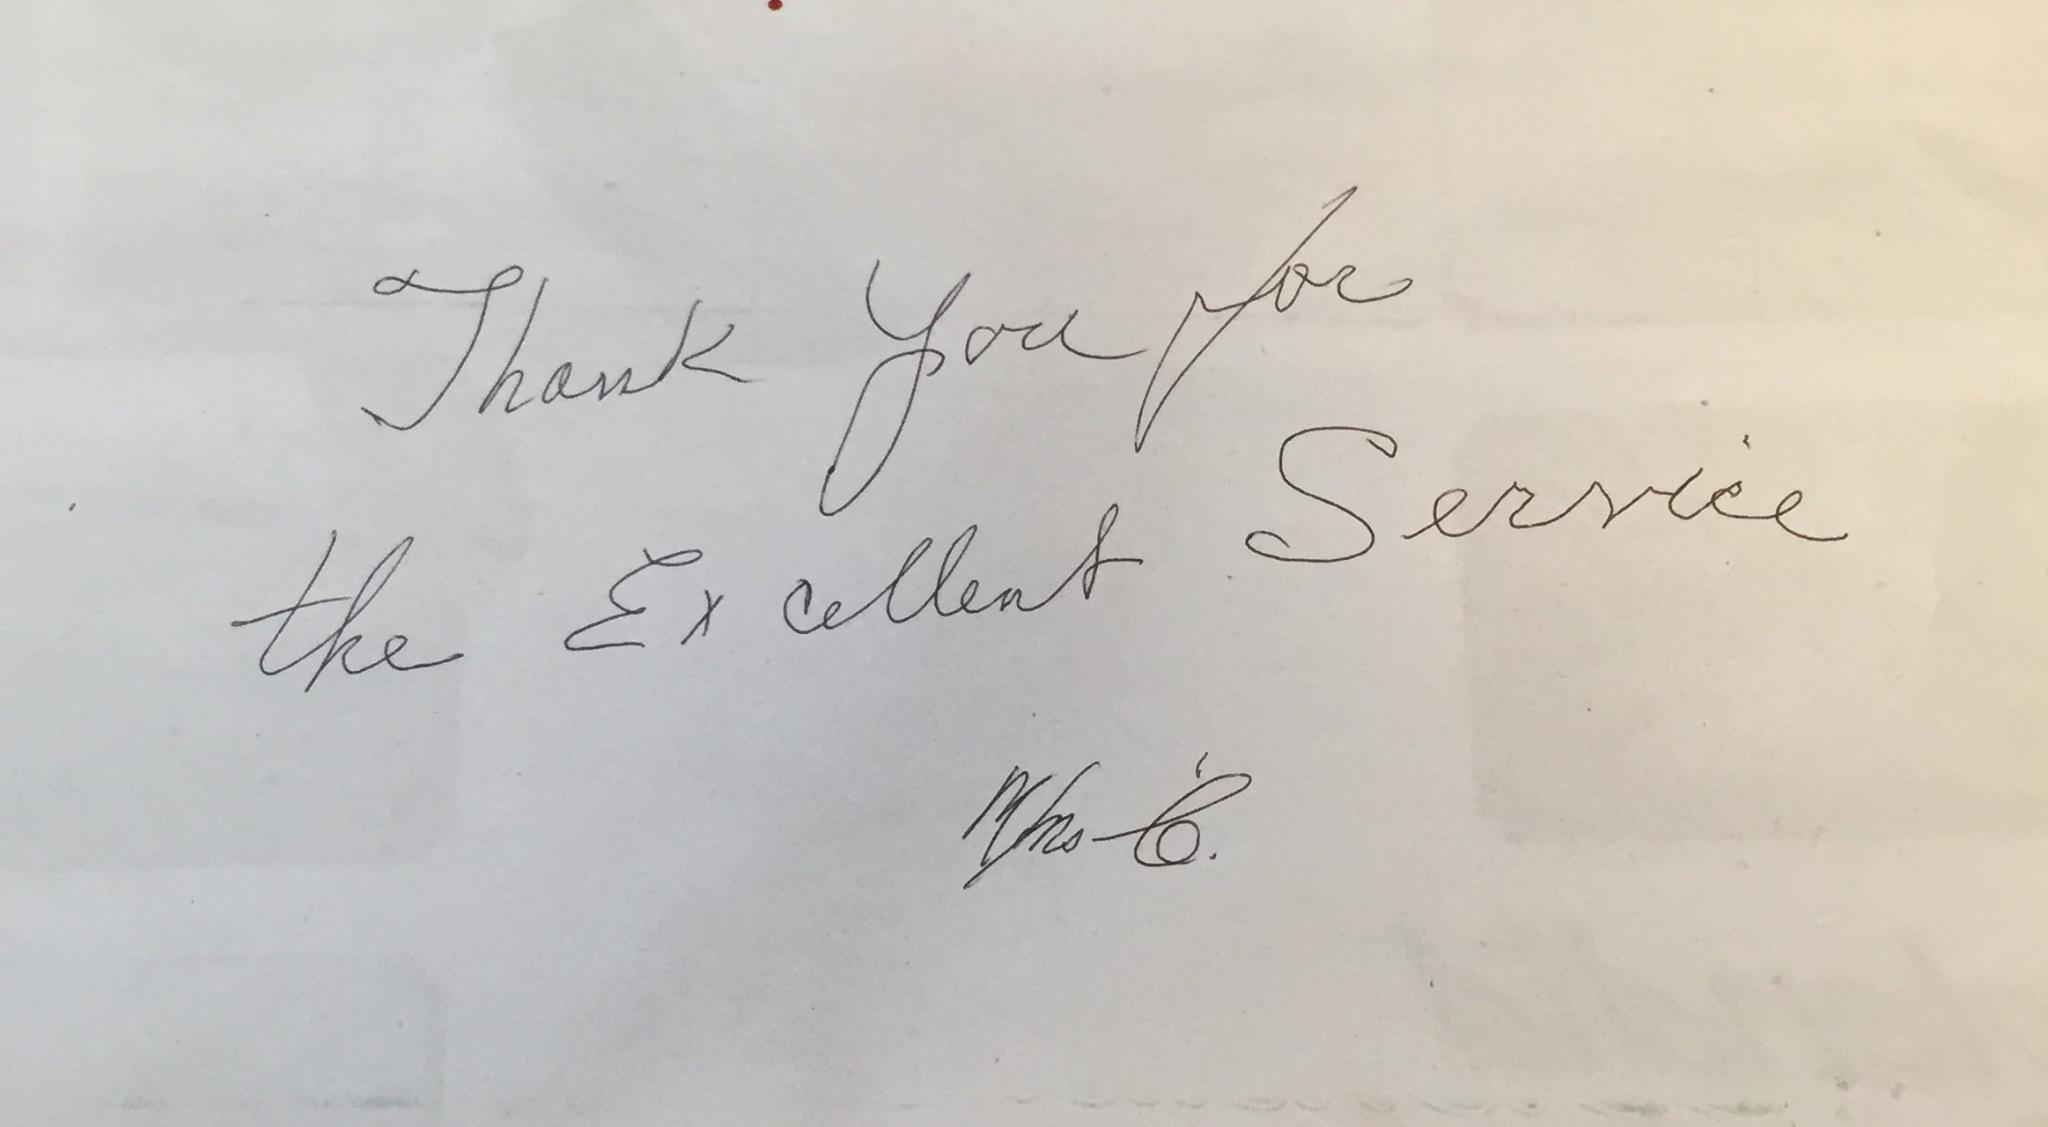 Thank You for
the Excellent Service
Mrs. C.